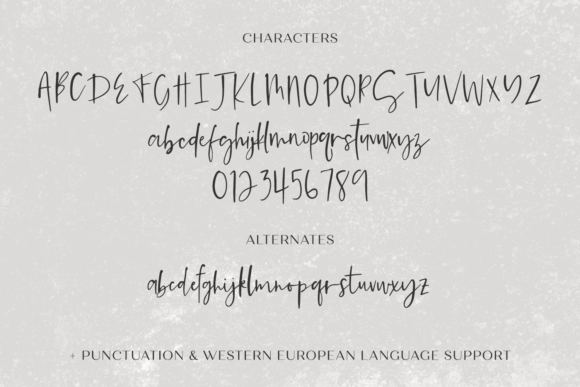 CHARACTERS
ABCDEFGHIJKLMNOPQRSTUVWXYZ
abcdefghijklmnopqrstuvwxyz
0123456789
ALTERNATES
abcdefghijklmnopqrstuvwxyz
+ PUNCTUATION & WESTERN EUROPEAN LANGUAGE SUPPORT